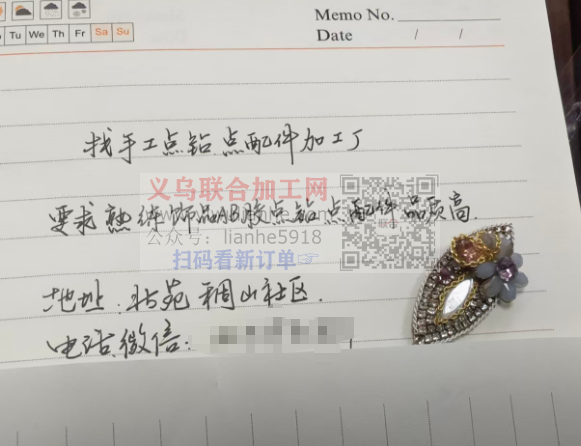 Memo No.
Date / /
Tu We Th Fr Sa Su
找手工点钻点配件加工厂
义乌联合加工网
要求熟练饰品AB胶点钻点配件品质高.
公众号: lianhe5918
扫码看新订单👉
地址.北苑稠山社区.
电话微信: